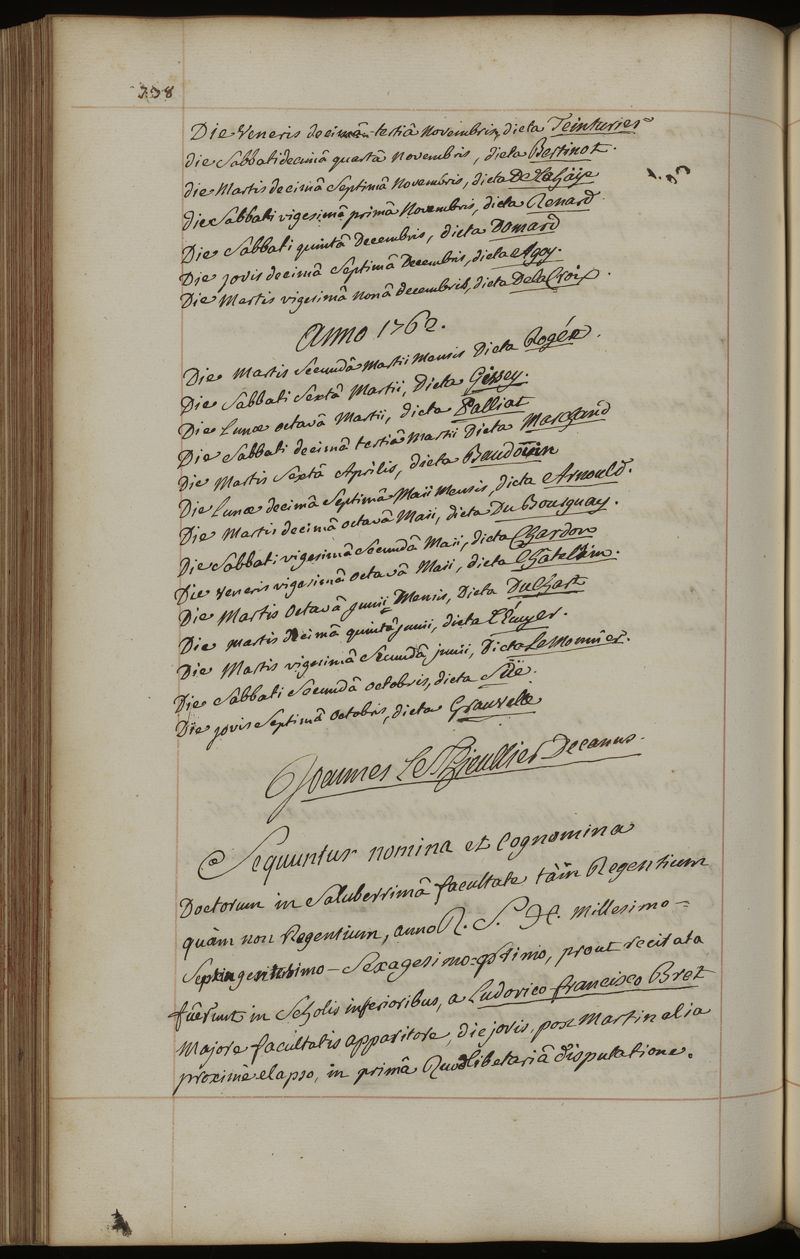 738
Die Veneris decimâ-tertiâ novembris, dicta Teinturier
die Sabbati decimâ quartâ novembris, dicta Bertinot.
die Martis decimâ Septimâ novembris, dicta De La Haÿe
die Sabbati vigesimâ primâ Novembris, dicta Renard
Die Sabbati quintâ Decembris, dicta Domard
Die jovis decimâ Septimâ Decembris, dicta
Die Martis vigesimâ nonâ decembris, dicta De la Croix.
Anno 1762.
Die Martis Secundâ Martii Mensis Dicta Rogér.
Die Sabbati Sextâ Martii, Dicta Gissey.
Die Lunæ octavâ Martii, dicta Palliat
Die Sabbati decimâ tertiâ Martii Dicta Marchand
Die Martis Sextâ Aprilis, dicta Baudoüin
Die Lunæ decimâ Septimâ Maii Mensis, dicta Arnould.
Die Martis decimâ octavâ Maii, dicta Du Bousquay.
Die Sabbati vigesimâ Secundâ Maii, dicta Chardon
Die Veneris vigesimâ octavâ Maii, dicta Châtelain.
Die Martis Octavâ junii Mensis, Dicta DuChast
Die martis decimâ quintâ junii, dicta L'Ecuyer.
Die Martis vigesimâ Secundâ junii, Dicta Le Monnier.
Die Sabbati Secundâ octobris, dicta Süe.
Die jovis Septimâ octobris, dicta Grauxelle
Joannes Le Thieullier Decanus.
Sequuntur nomina et Cognomina
Doctorum in Saluberrimâ facultate tàm Regentium
quàm non Regentium, anno R. S. H. Millesimo=
Septingentesimo-Sexagesimo, prout recitata
fuerunt in Scholis inferioribus, a Ludovico francisco Bret
Majore facultatis apparitore, die jovis, post Martinalia
proximè elapso, in primâ Quodlibetariâ disputatione.